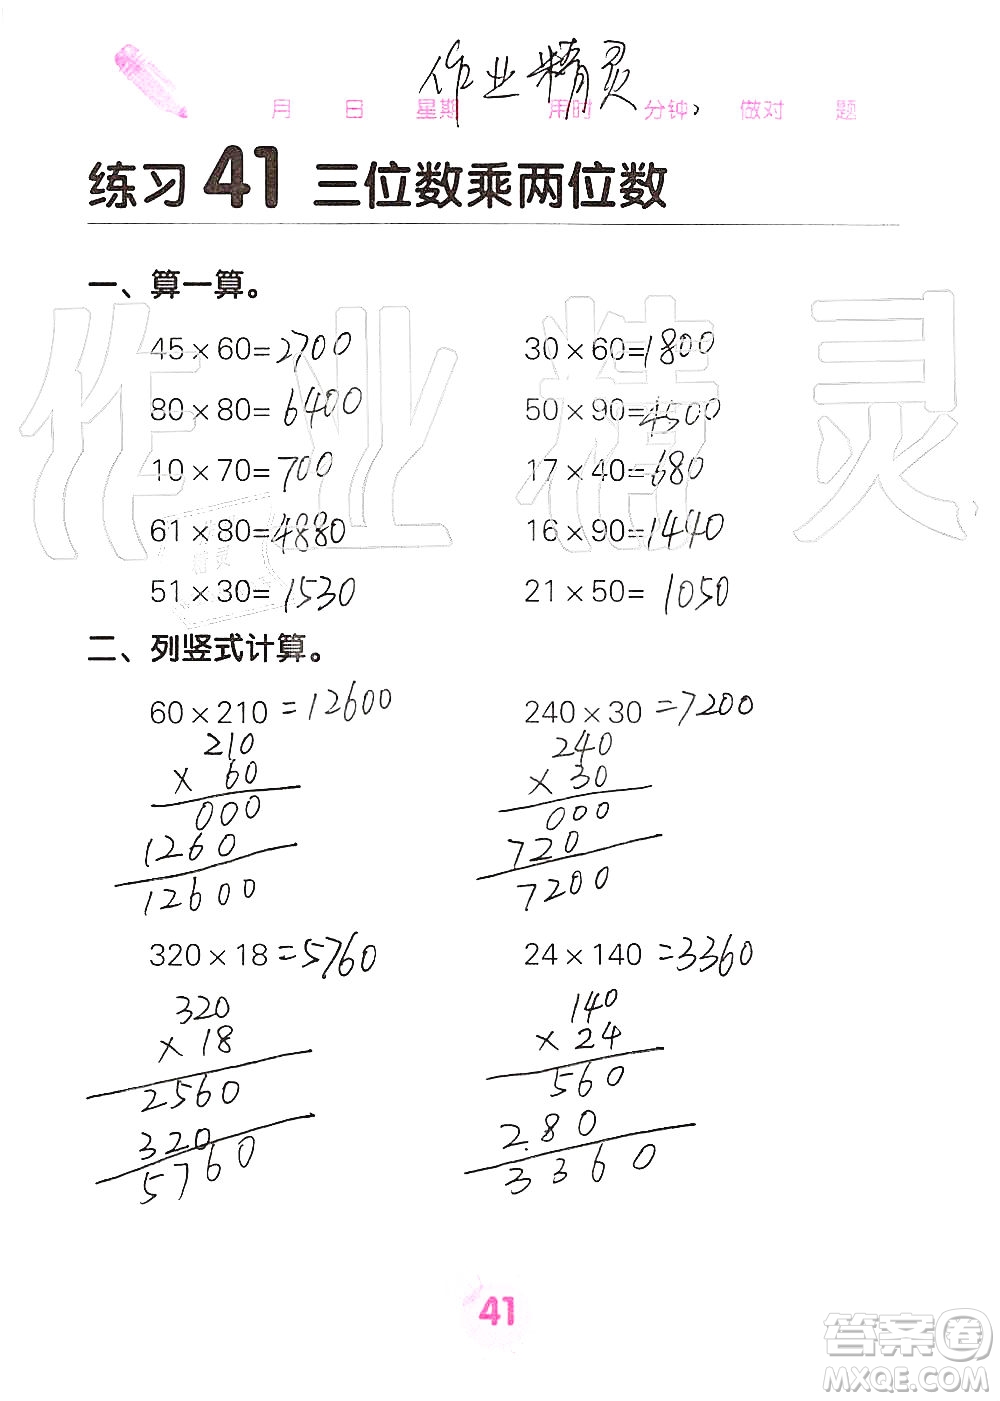 作业精灵
月 日 星期 用时 分钟 做对 题
练习 41 三位数乘两位数
一、算一算。
45×60=2700 30×60=1800
80×80=6400 50×90=4500
10×70=700 17×40=680
61×80=4880 16×90=1440
51×30=1530 21×50=1050
二、列竖式计算。
60×210=12600 240×30=7200
210 240
× 60 × 30
000 000
1260 720
12600 7200
320×18=5760 24×140=3360
320 140
×18 ×24
2560 560
320 280
5760 3360
41
作业精灵
答案圈
MXQE.COM